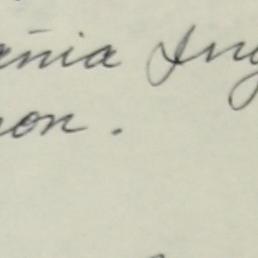 ania Ing
on.